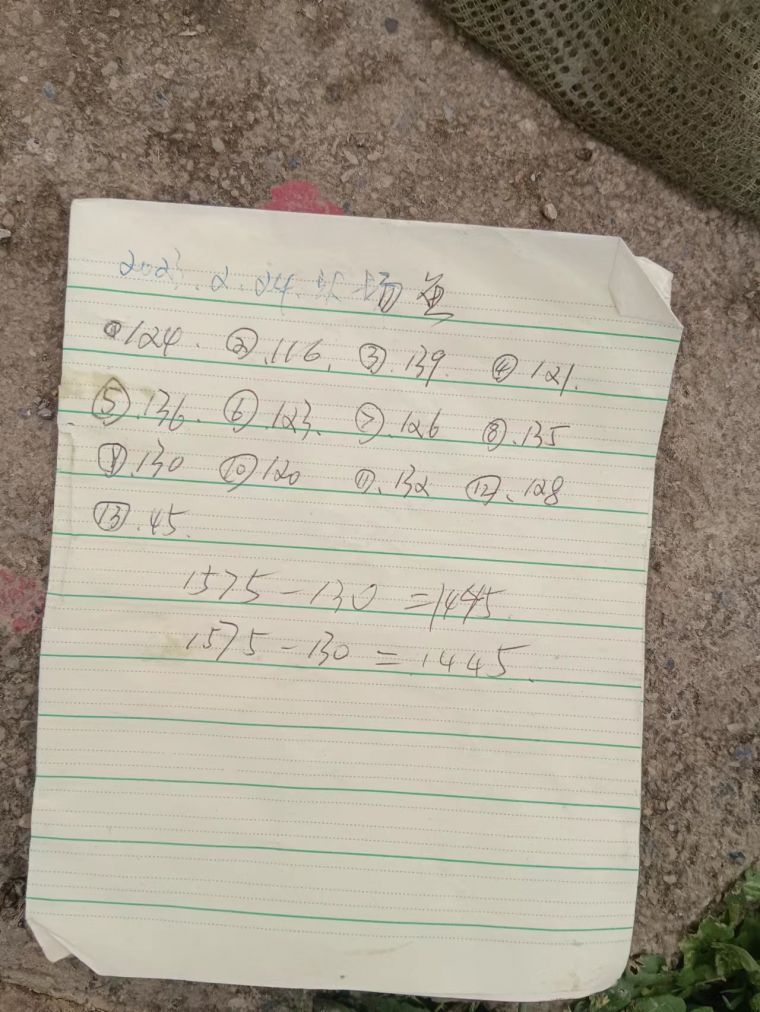 2023.2.24. 场鱼
①124. ②.116. ③.139. ④.121.
⑤.136. ⑥.123. ⑦.126 ⑧.135
⑨.130 ⑩120 ⑪.132 ⑫.128
⑬.45.
1575-130=1445.
1575-130=1445.